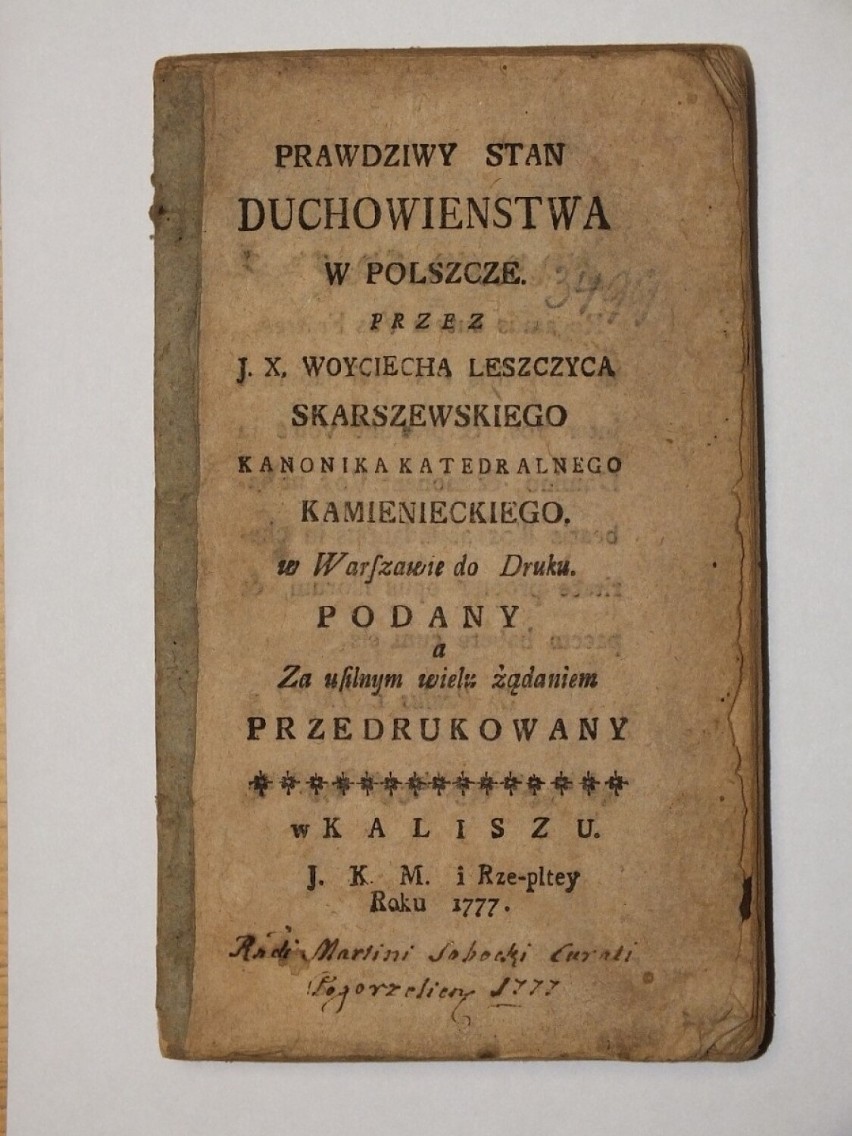 PRAWDZIWY STAN
DUCHOWIENSTWA
W POLSZCZE.
3499
PRZEZ
J. X. WOYCIECHA LESZCZYCA
SKARSZEWSKIEGO
KANONIKA KATEDRALNEGO
KAMIENIECKIEGO.
w Warſzawie do Druku.
PODANY
a
Za uſilnym wielu żądaniem
PRZEDRUKOWANY
w KALISZU.
J. K. M. i Rze-pltey
Roku 1777.
Rndi Martini Sobocki Curati
1777